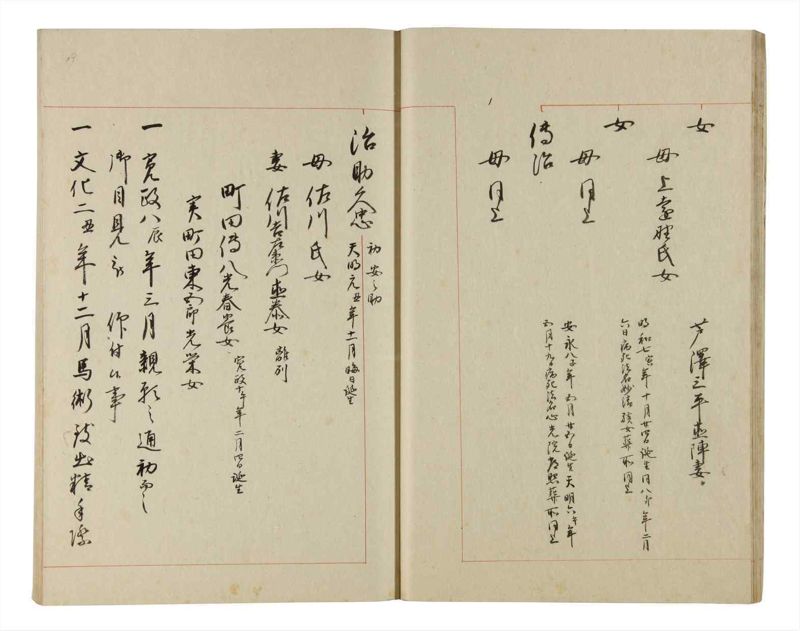 女
母上遠野氏女
芦澤三平直陣妻
女
明和七寅年十月廿四日誕生同八卯年二月
六日病死法名妙法孩女葬所同上
母同上
傳治
安永八子年五月廿五日誕生天明六午年
五月十九日病死法名心光院 葬所同上
母同上
治助久忠
初安之助
天明元丑年十二月晦日誕生
母佐川氏女
妻佐川吉左衛門直泰女 離別
町田傳八光春養女 寛政十午年二月四日誕生
実町田東五郎光栄女
一寛政八辰年三月親願之通初而之
御目見被 仰付候事
一文化二丑年十二月馬術致出精手際